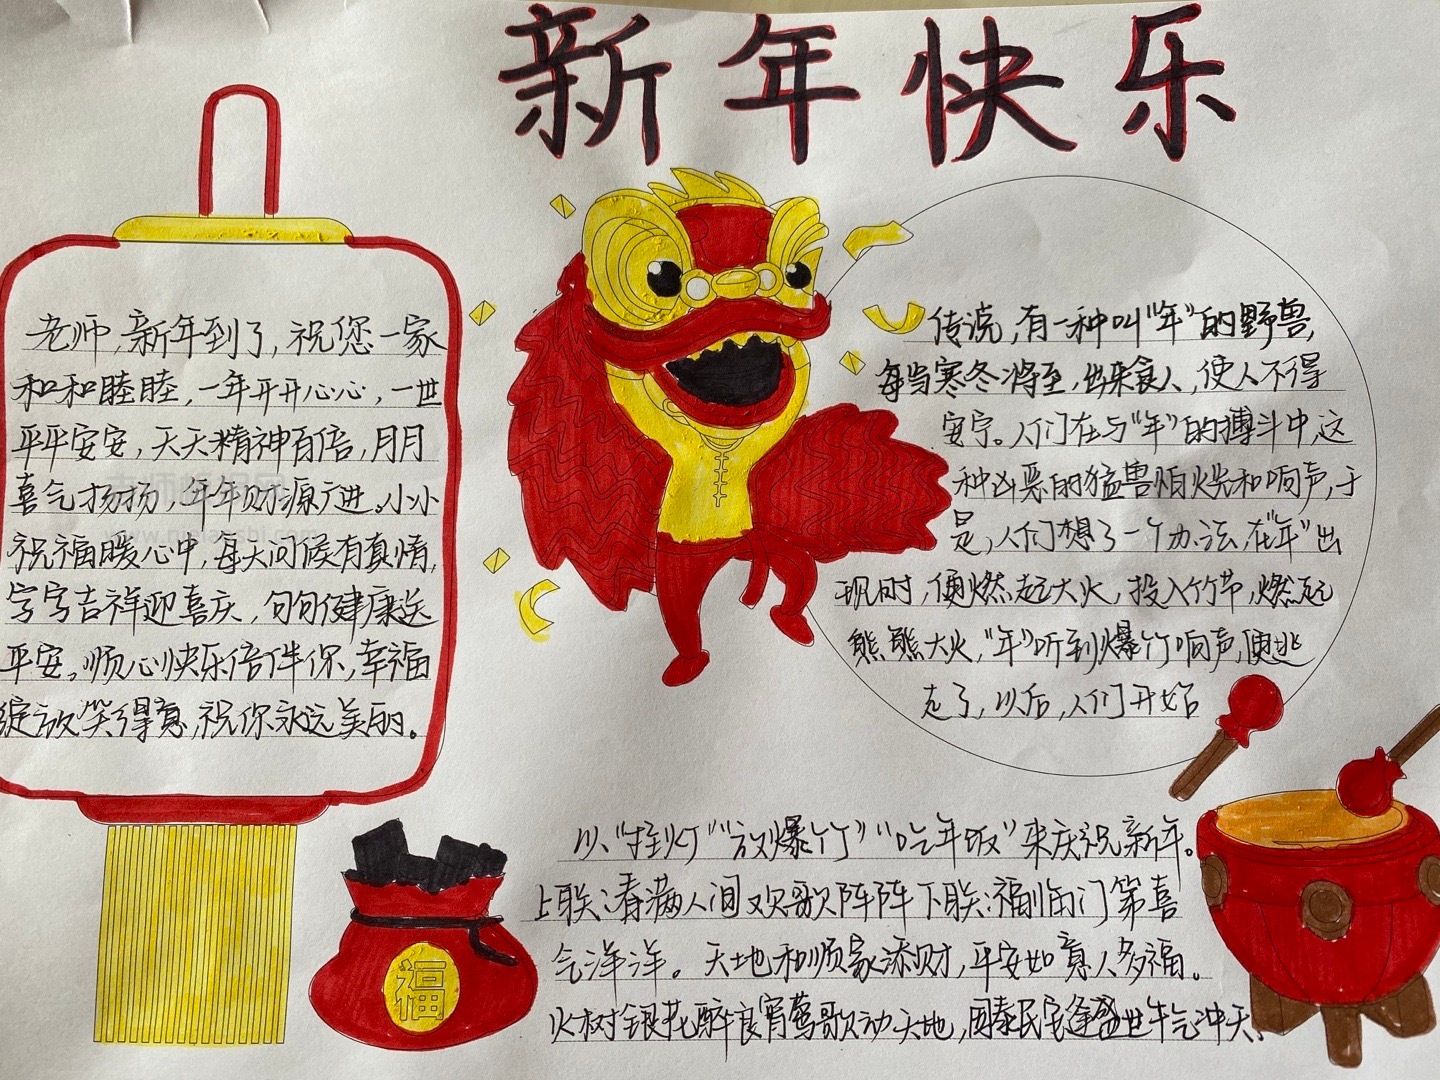 新年快乐
老师,新年到了,祝您一家
和和睦睦,一年开开心心,一世
平平安安,天天精神百倍,月月
喜气扬扬,年年财源广进。小小
祝福暖心中,每天问候有真情,
字字吉祥迎喜庆,句句健康送
平安。顺心快乐倍伴你,幸福
绽放笑得意,祝你永远美丽。
传说,有一种叫"年"的野兽,
每当寒冬将至,出来食人,使人不得
安宁。人们在与"年"的搏斗中,这
种凶恶的猛兽怕火光和响声,于
是,人们想了一个办法,在"年"出
现时,便燃起大火,投入竹节,燃起
熊熊大火,"年"听到爆竹响声,便逃
走了,以后,人们开始
以"挂灯""放爆竹""吃年饭"来庆祝新年。
上联:春满人间欢歌阵阵 下联:福临门第喜
气洋洋。天地和顺家添财,平安如意人多福。
火树银花醉良宵莺歌动天地,国泰民安逢盛世牛气冲天。
福